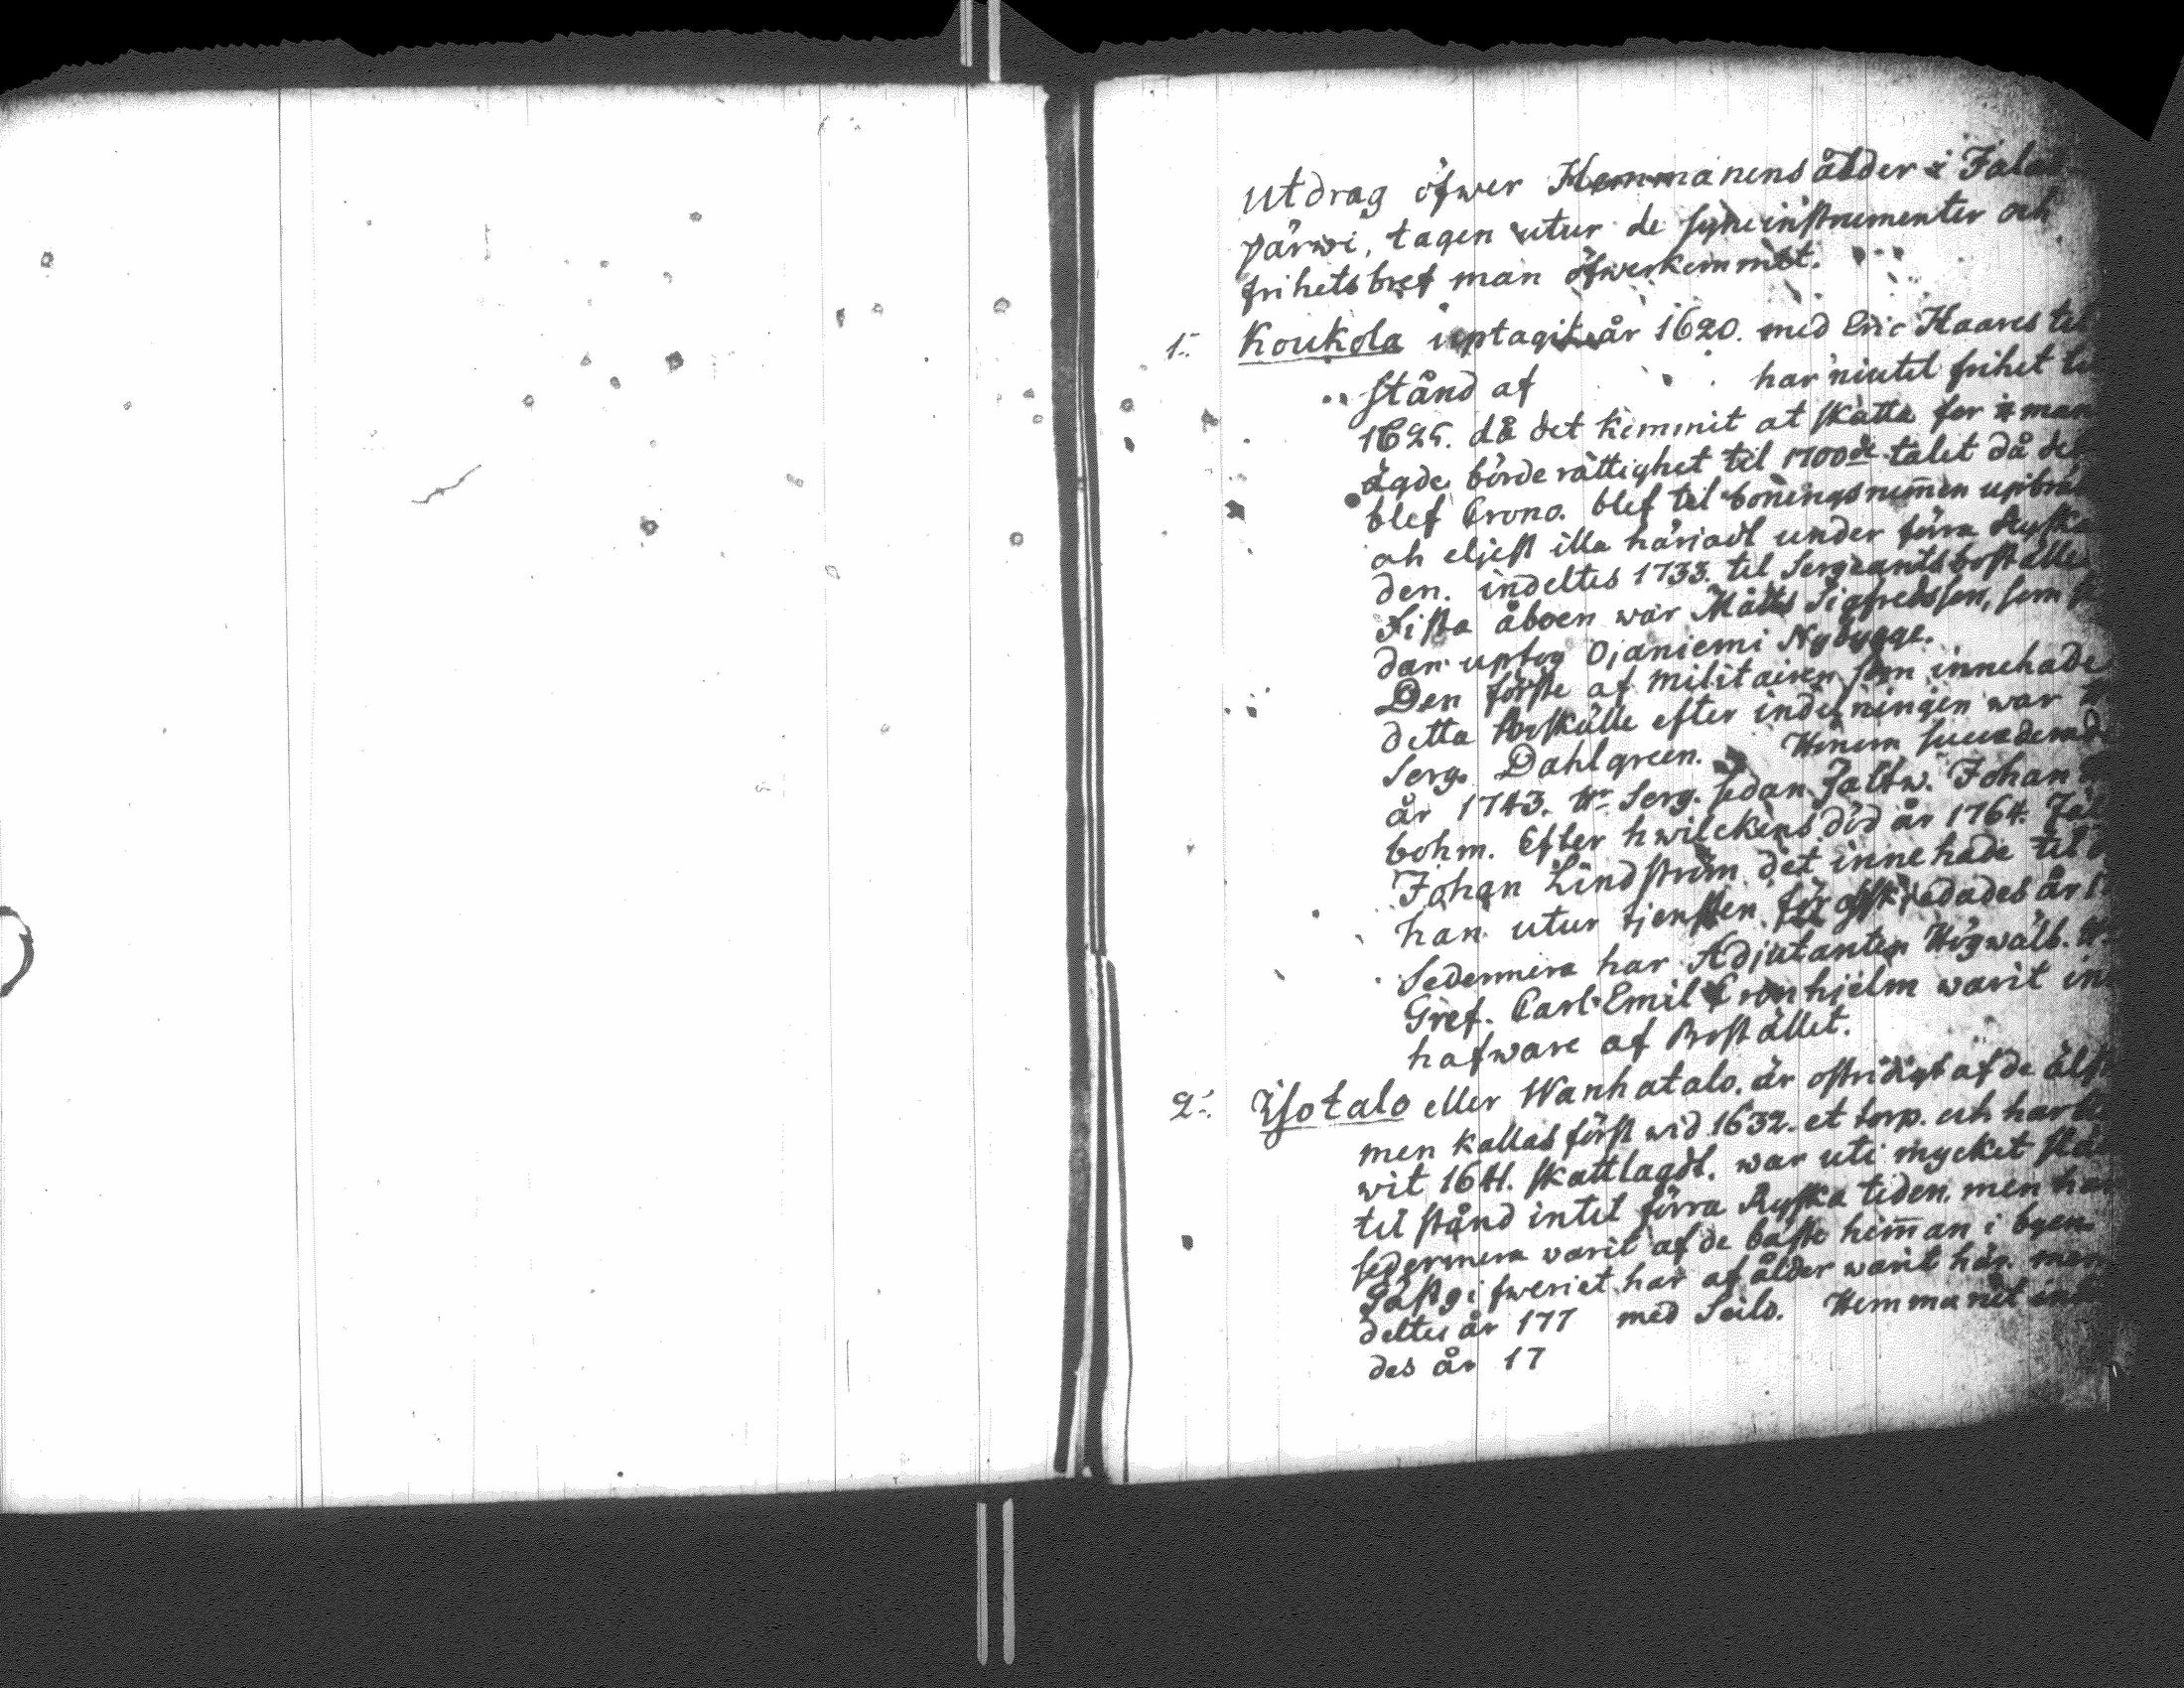 utdrag öfwer Hemmanens ålder i Jalas
järwi, tagen utur de syneinstrumenter och
frihetsbref man öfwerkommit.
1. Koukola uptagit år 1620. med Eric Haares til
stånd af har niutit frihet til
1625. då det kommit at skatta for man
ägde börderättighet til 1700de talet då det
blef Crono. blef til boningsrummen
och eljest illa härjadt under förra Ryska
den. indeltes 1733. til Sergeantsboställe
Sista åboen war Matts Sigfredsson, som
dan uptog Ojaniemi Nybygge.
Den förste af militairen som innehade
detta Boställe efter indelningen war
Serg. Dahlgreen. Honom succederade
år 1743. Hr Serg. sedan Fältw. Johan
bohm. Efter hwilckens död år 1764.
Johan Lindström det innehade til
han utur tjensten afskiedades år
Sedermera har Adjutanten Högwall. Hr
Gref. Carl Emil Cronhjelm warit in
hafware af Bostället.
2. Isotalo eller Wanhatalo. är ostridigt af de älst
men kallas först wid 1632. et torp. och har
wit 1641. skattlagdt. war uti mycket
til stånd intil förra Ryska tiden. men har
sedermera warit af de bäste heman i byen
Gästgifweriet har af ålder warit här. men
deltes år 177 med Seilo. Hemmanet
des år 17